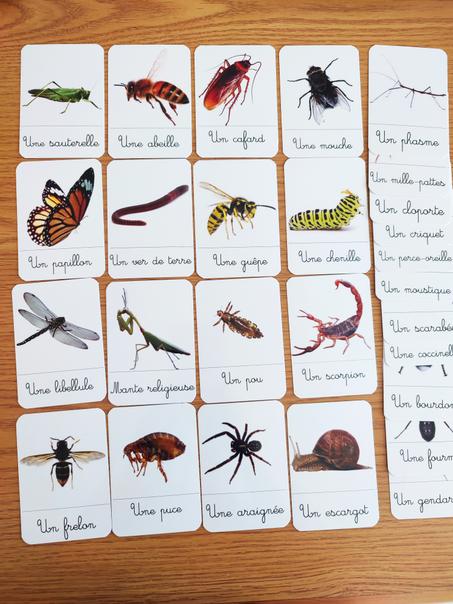 Une sauterelle
Une abeille
Un cafard
Une mouche
Un phasme
Un papillon
Un ver de terre
Une guêpe
Une chenille
Une libellule
Mante religieuse
Un pou
Un scorpion
Un frelon
Une puce
Une araignée
Un escargot
Un mille-pattes
Un cloporte
Un criquet
Un perce-oreille
Un moustique
Un scarabé
Une coccinell
Un bourdon
Une fourm
Un gendar